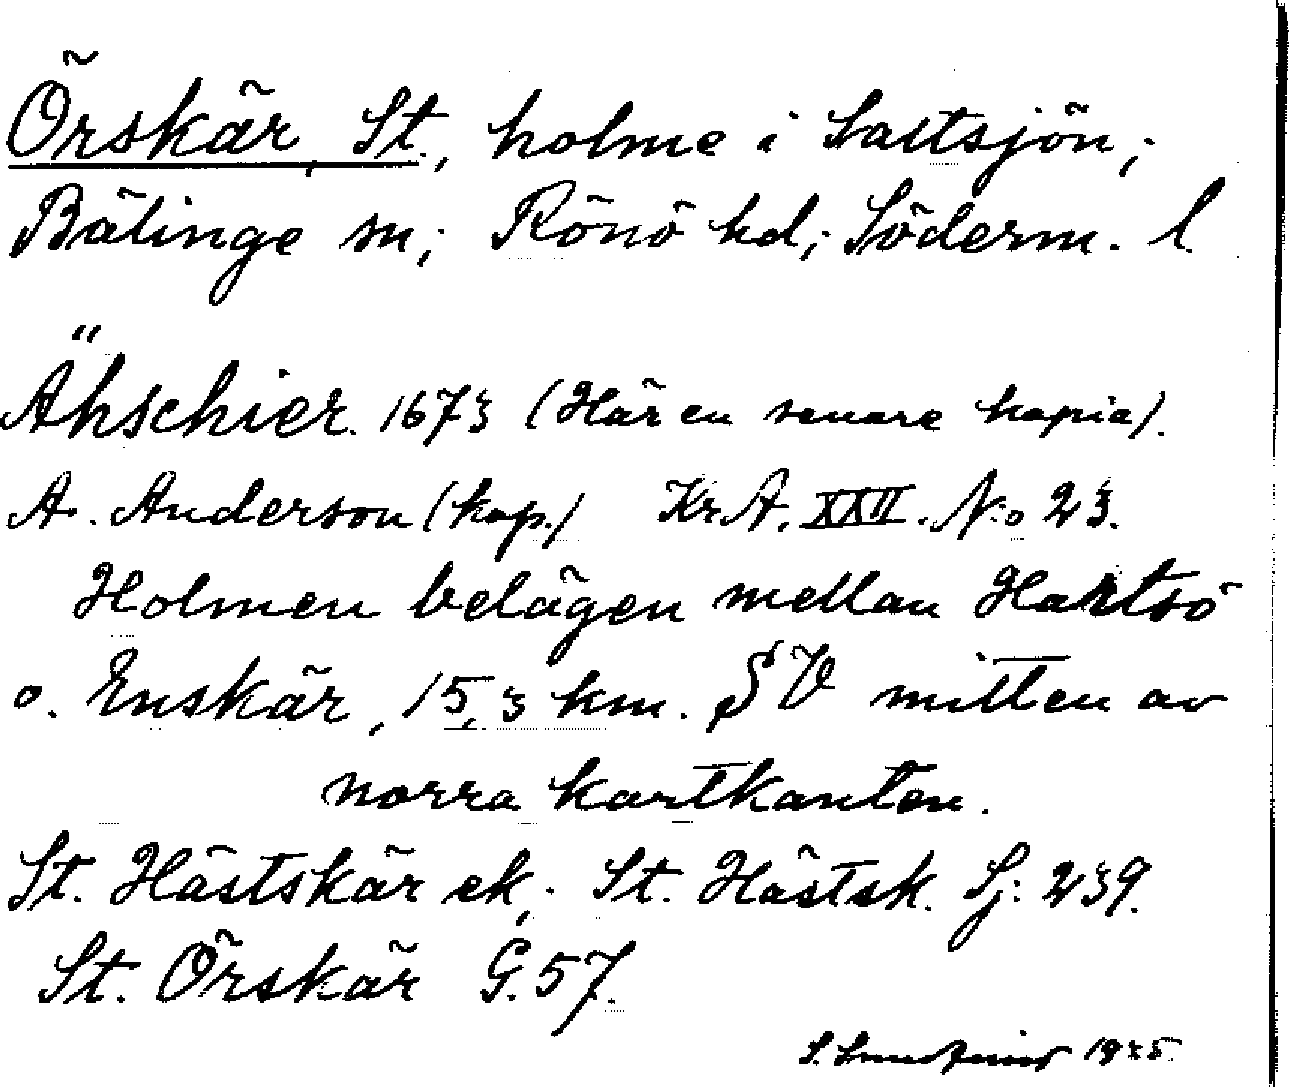 Örskär, St., holme i Saltsjön;
Bälinge sn; Rönö hd; Söderm. l
Ähschier. 1673 (Här en senare kopia).
A. Anderson (kop.) Kr.A. XXII. No 23.
Holmen belägen mellan Hartsö
o. Enskär, 15,3 km. SV mitten av
norra kartkanten.
St. Hästskär ek; St. Hästsk. Sj: 239.
St. Örskär G. 57.
S. 1935.